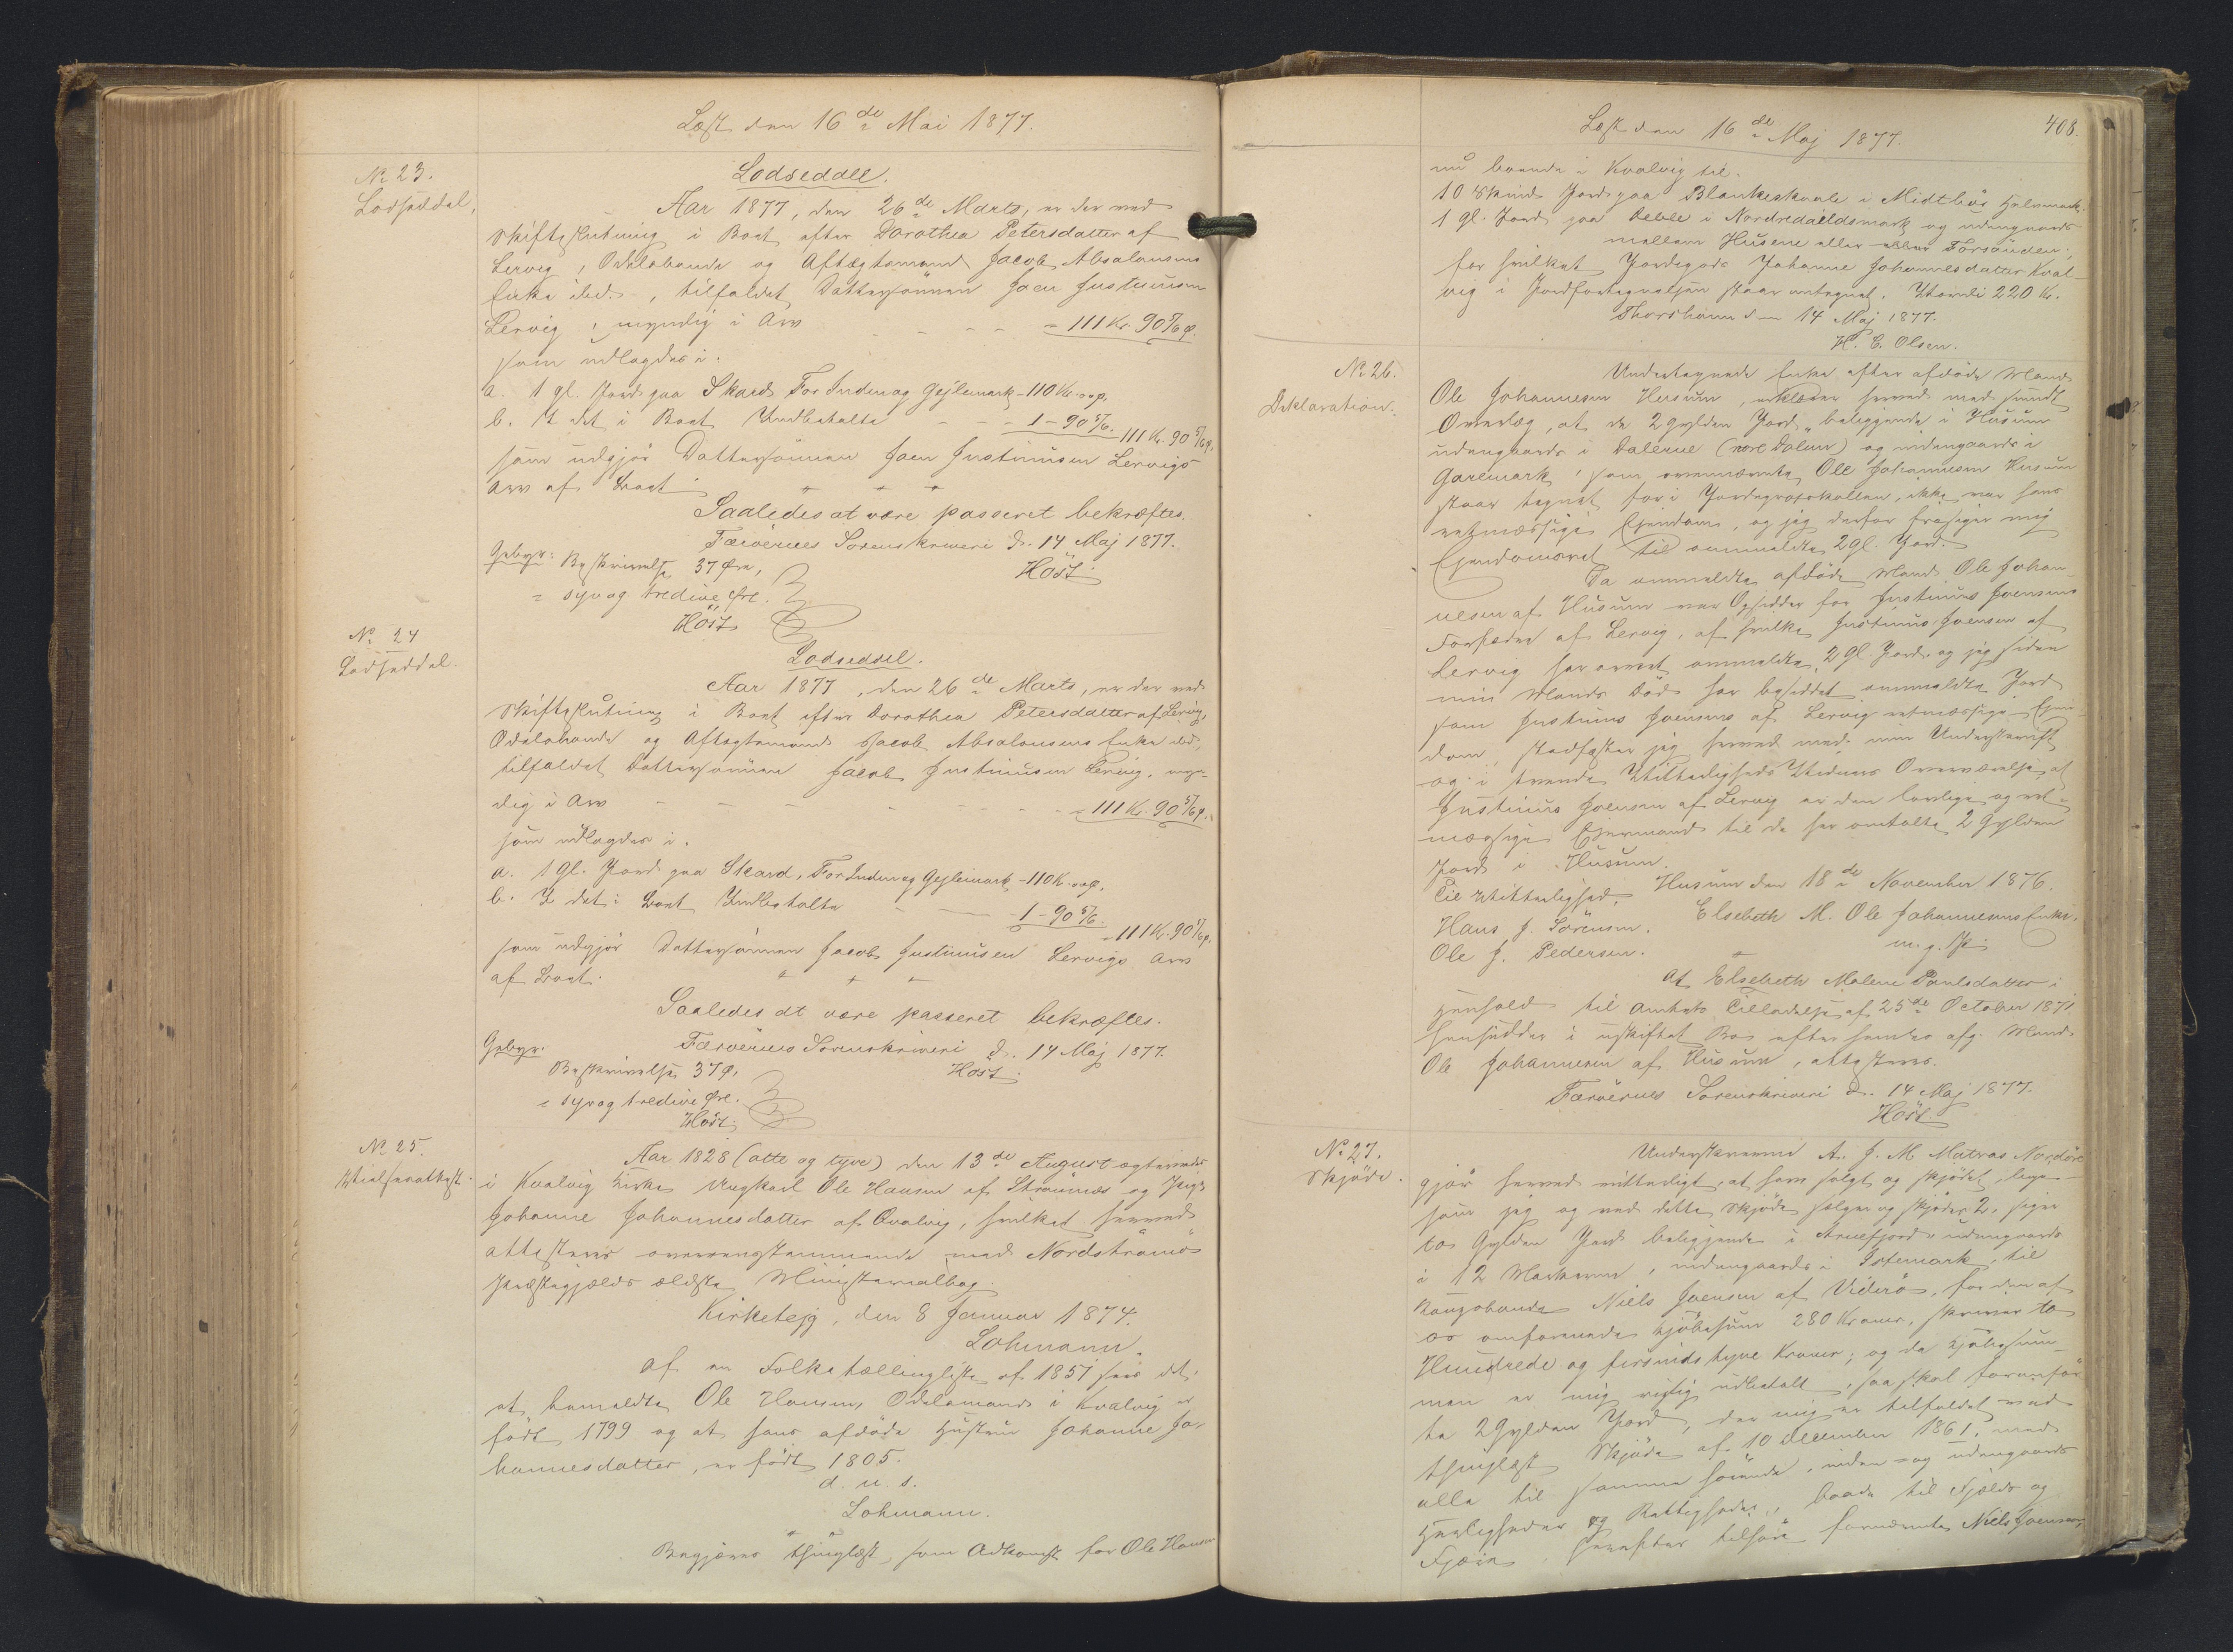 Læst den 16de Mai 1877.
No 23.
Lodseddel.
Lodseddel.
Aar 1877, den 26de Marts, er der ved
Skifteslutning i Boet efter Dorothea Petersdatter af
Lervig, Odelsbonde og Aftægtsmand Jacob Absalonsens
Enke ibid., tilfaldet Dattersönnen Joen Justinusen
Lervig, myndig i Arv - - - - = 111 Kr. 90 5/6 ø.
som udlagdes i.
a. 1 gl. Jord paa Skard For Inden og Gejlemark - 110 Kr. oo ø.
b. I det i Boet Indbetalte - - - 1 - 90 5/6. 111 Kr. 90 5/6 ø.
som udgjör Dattersönnen Joen Justinusen Lervigs
Arv af Boet.
Saaledes at være passeret bekræftes.
Færöernes Sorenskriveri d. 14 Maj 1877.
Höst
Gebyr: Beskrivelse 37 Øre,
= syv og tredive Øre.
Höst
No 24
Lodseddel.
Lodseddel.
Aar 1877, den 26de Marts, er der ved
Skifteslutning i Boet efter Dorothea Petersdatter af Lervig,
Odelsbonde og Aftægtsmand Jacob Absalonsens Enke ibid,
tilfaldet Dattersönnen Jacob Justinusen Lervig, myn-
dig i Arv - - - - - - - = 111 Kr. 90 5/6 ø.
som udlagdes i.
a. 1 gl. Jord paa Skard, For Inden og Gejlemark - 110 K. oo ø.
b. I det i Boet Indbetalte - - - 1 - 90 5/6.
= 111 Kr. 90 5/6 ø.
som udgjör Dattersönnen Jacob Justinusen Lervigs Arv
af Boet.
Saaledes at være passeret bekræftes.
Færöernes Sorenskriveri d. 14 Maj 1877.
Höst.
Gebyr.
Beskrivelse 37 ø.
= syv og tredive Øre.
Höst.
No 25.
Vielsesattest.
Aar 1828 (otte og tyve) den 13de August ægteviedes
i Kvalvig Kirke Ungkarl Ole Hansen af Strömnæs og Pige
Johanne Johannesdatter af Qvalvig, hvilket herved
attesteres overensstemmende med Nordströmös
Præstegjælds ældste Ministerialbog.
Kirketejg, den 8 Januar 1874.
Lohmann.
Af en Folketællingsliste af 1851 sees det,
at bemeldte Ole Hansen, Odelsmand i Kvalvig er
född 1799 og at hans afdöde Hustru Johanne Jo-
hannesdatter, er född 1805.
d. u. s.
Lohmann.
Begjæres thinglæst, som Adkomst for Ole Hansen
Læst den 16de Maj 1877.
408.
nu boende i Kvalvig til.
10 Skind Jord paa Blankeskaale i Midtbös Halvmark.
1 gl. Jord paa i og udengaards
mellem Husene eller
for hvilket Jordegods Johanne Johannesdatter Kval-
vig i Jordfortegnelsen staar antegnet. Værdi 220 Kr.
Thorshavn d. 14 Maj 1877.
H. C. Olsen.
No 26.
Deklaration.
Undertegnede Enke efter afdöde Mand
Ole Johannesen Husum, erklærer herved med sundt
Overlæg, at de 2 Gylden Jord, beliggende i Husum
udengaards i Dalerne og indengaards i
Garemark, som ovennævnte Ole Johannesen Husum
staar tegnet for i Jordeprotokollen, ikke var hans
retmæssige Ejendom, og jeg derfor frasiger mig
Ejendomsret til anmeldte 2 gl. Jord.
Da anmeldte afdöde Mand Ole Johan-
nesen af Husum var Opsidder for Justinus Joensens
Forfædre af Lervig, af hvilke Justinus Joensen af
Lervig har arvet anmeldte 2 gl. Jord og jeg siden
min Mands Död har besiddet anmeldte Jord
som Justinus Joensens af Lervig retmæssige Ejen-
dom, stadfæster jeg herved med min Underskrift
og i tvende Vitterligheds Vidners Overværelse, at
Justinus Joensen af Lervig er den lovlige og ret-
mæssige Ejermand til de her omtalte 2 Gylden
Jord i Husum.
Husum den 18de November 1876.
Til Vitterlighed.
Elsebeth M. Ole Johannesens Enke.
Hans J. Sörensen.
m. f. P.
Ole J. Pedersen.
At Elsebeth Malene Poulsdatter i
Henhold til Amtets Tilladelse af 25de October 1871
hensidder i uskiftet Bo efter hendes afg. Mand
Ole Johannesen af Husum, attesteres.
Færöernes Sorenskriveri d. 14 Maj 1877.
Höst.
No 27.
Skjöde.
Underskrevne A. J. M. Matras Nordöre
gjör herved vitterligt, at have solgt og skjödet, lige-
som jeg og ved dette Skjöde sælger og skjöder 2, siger
to Gylden Jord beliggende i Arnefjord, udengaards
i 12 Markerne, indengaards i Istemark, til
Kongsbonde Niels Joensen af Viderö, for den af
os omforenede Kjöbesum 280 Kroner, skriver to
Hundrede og firsindstyve Kroner; og da Kjöbesum-
men er mig rigtig udbetalt, saa skal foranför-
te 2 Gylden Jord, der mig er tilfaldet ved
thinglæst Skjöde af 10 December 1861, med
alle til samme hörende, inden- og udengaards
Herligheder og Rettigheder, baade til Fjelds og
Fjære, herefter tilhöre fornævnte Niels Joensen,